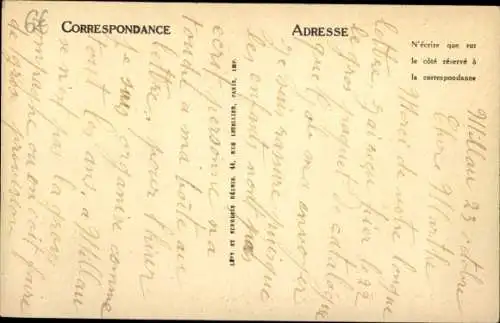 CORRESPONDANCE
ADRESSE
N'écrire que sur
le côté réservé à
la correspondance
LÉVY ET NEURDEIN RÉUNIS, 44, RUE LETELLIER, PARIS, IMP.
Millau 23 octobre
Chère Marthe
Merci de votre longue
lettre, j'ai reçu hier le 22
le gros paquet de catalogue
que l'on m'a envoyer
je suis rassuré puisque
les enfant n'ont pas
écrit personne n'a
touché a ma boîte au
lettre, pour l'hiver
je suis organisé comme
tout les ans, a Millau
se n'est pas la presse
sympathie ou on doit faire
de gros provision